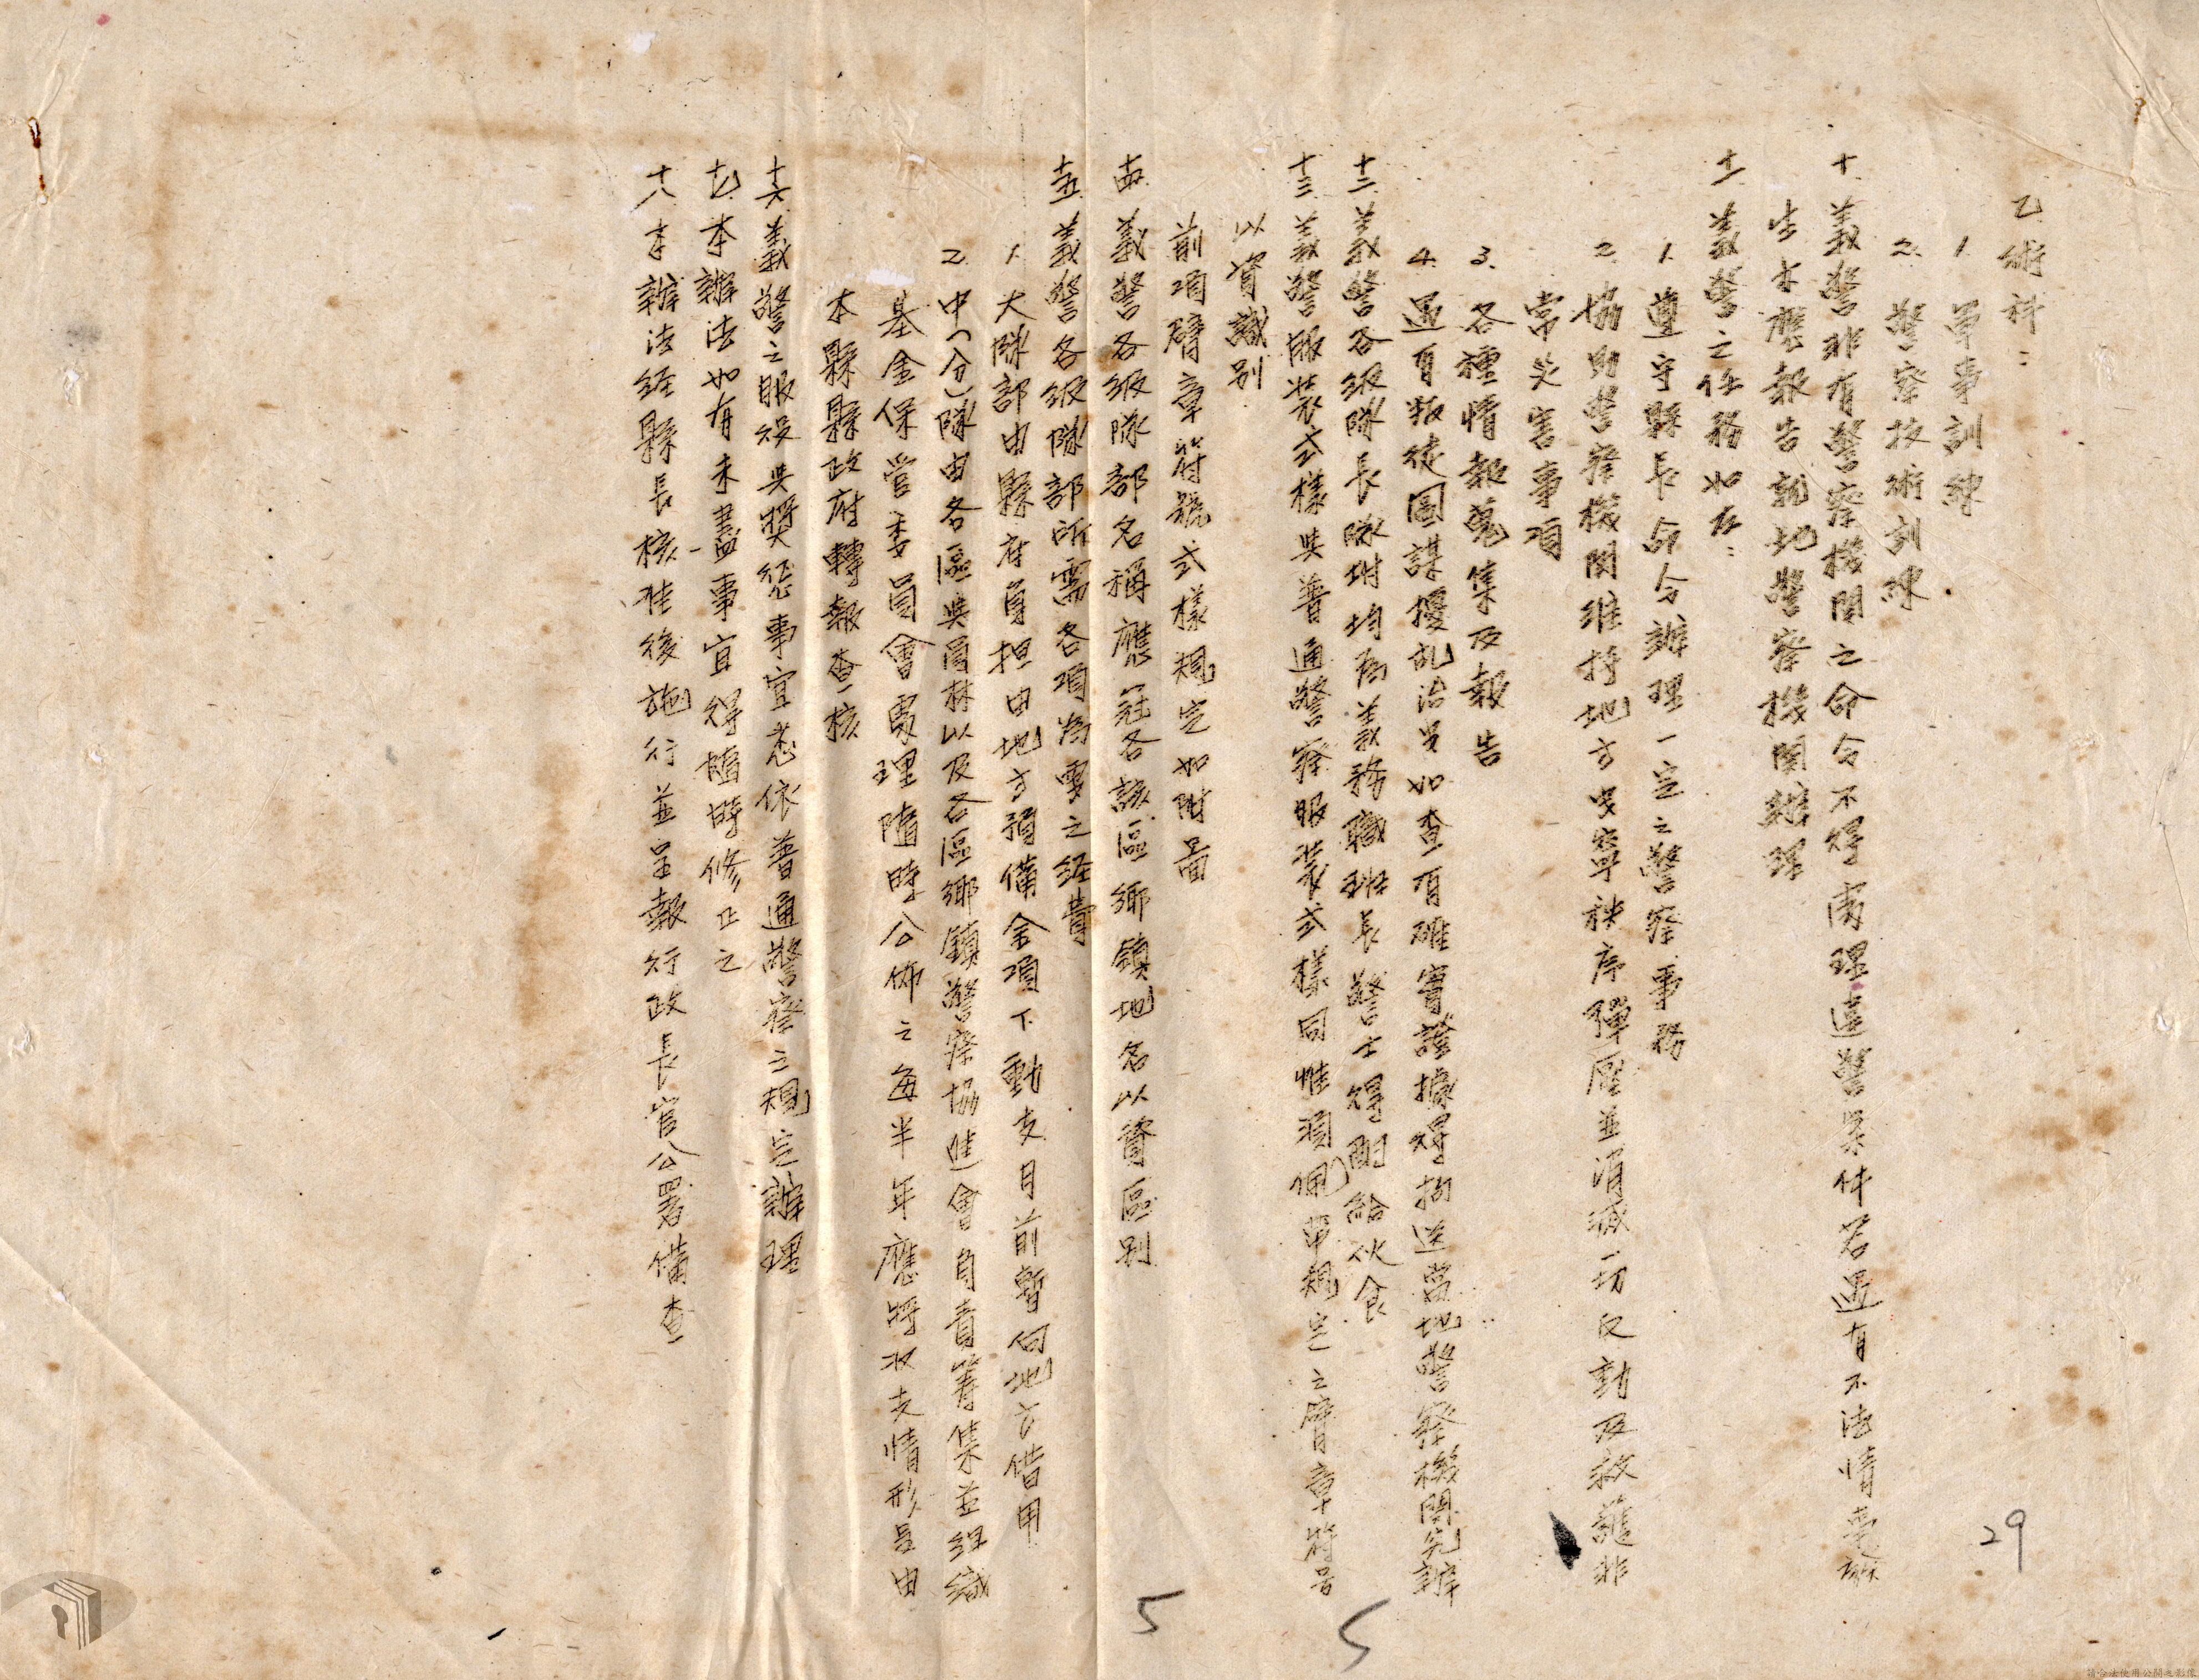 乙術科：
1. 軍事訓練
2. 警察技術訓練
十. 義警非有警察機関之命令不得處理違警案件若遇有不法情事發
生亦應報告就地警察機関辦理
十一. 義警之任務如左：
1. 遵守縣長命令辦理一定之警察事務
2. 協助警察機関維持地方安寧秩序彈壓並消滅一切反動及救護非
常災害事項
3. 各種情報蒐集及報告
4. 遇有叛徒圖謀擾乱治安如查有確實證據得拘送當地警察機関究辦
十二. 義警各級隊長隊附均為義務職班長警士得酌給伙食
十三. 義警服裝式樣與普通警察服裝式樣同惟須佩帶規定之臂章符号
以資識别
前項臂章符號式樣規定如附圖
十四. 義警各級隊部名稱應冠各該區鄉鎮地名以資區别
十五. 義警各級隊部所需各項為要之経費
1. 大隊部由縣府負担由地方預備金項下動支目前暫向地方借用
2. 中(分)隊由各區與員林以及各區鄉鎮警察協進會自責籌集並組織
基金保管委員會處理隨時公佈之每半年應將收支情形呈由
本縣縣政府轉報查核
十六 義警之服役與獎懲事宜悉依普通警察之規定辦理
十七. 本辦法如有未盡事宜得隨時修正之
十八 本辦法経縣長核准後施行並呈報行政長官公署備查
29
5
5